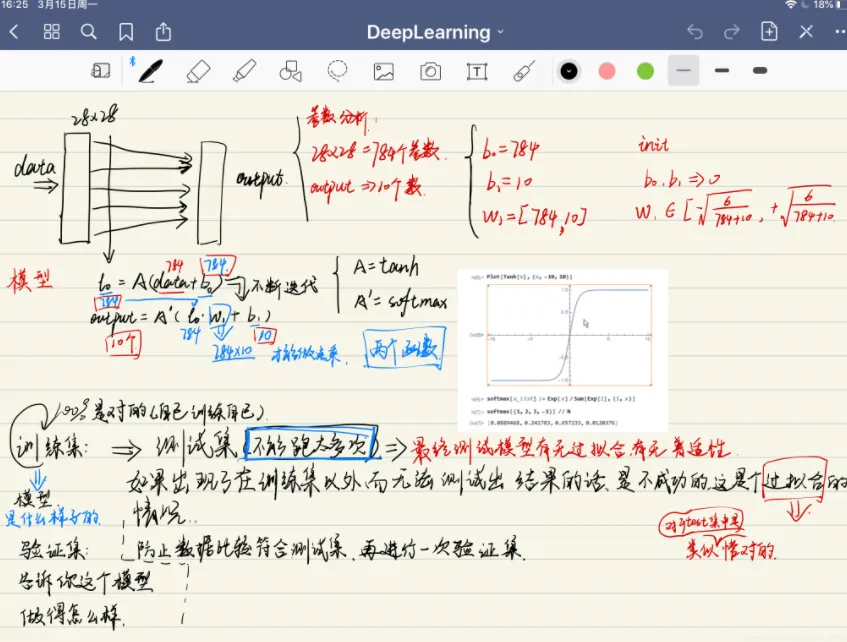 16:25 3月15日周一
18%
DeepLearning
28×28
data
output.
参数分析:
28×28 = 784个参数.
output ⇒ 10个数.
b₀=784
b₁=10
W₁=[784,10]
init
b₀.b₁ ⇒ 0
W₁ ∈ [-√(6/(784+10)), +√(6/(784+10))
模型
784 784.
l₀ = A(data+b₀) 不断迭代
784
output = A'(l₀·W₁+b₁)
10个 784 784×10 10
才能做点乘.
两个函数.
A=tanh
A'=softmax
Plot[Tanh[x], {x, -10, 10}]
1.0
0.5
-10 -5 5 10
-0.5
-1.0
softmax[x_List] := Exp[x]/Sum[Exp[i], {i, x}]
softmax[{1, 2, 3, -1}] // N
100%是对的(自己训练自己).
训练集: ⇒ 测试集(不能跑太多次) ⇒ 最终测试模型有无过拟合有无普适性.
如果出现了在训练集以外而无法测试出结果的话.是不成功的.这是个过拟合的
情况..
模型.
是什么样子的.
对于test集中是
类似 对的.
验证集: 防止数据比较符合测试集.再进行一次验证集.
告诉你这个模型
做得怎么样.